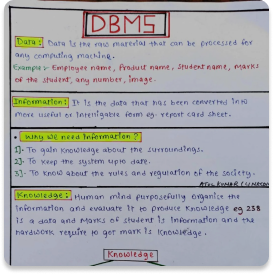 DBMS
Data: Data is the raw material that can be processed for
any computing machine.
Example:- Employee name, Product name, Student name, Marks
of the student, any number, image.
Information: It is the data that has been converted into
more useful or intelligible form eg. report card sheet.
Why we need Information?
1)- To gain knowledge about the surroundings.
2)- To keep the system upto date.
3)- To know about the rules and regulation of the society.
ATUL KUMAR
Knowledge: Human mind purposefully organize the
information and evaluate it to produce knowledge eg 238
is a data and marks of student is information and the
hardwork require to get mark is knowledge.
Knowledge